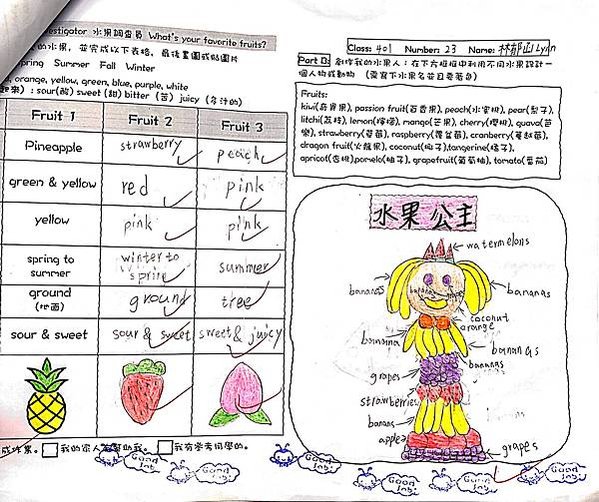 estigator 水果調查員 What's your favorite fruits?
的水果，並完成以下表格，最後畫圖或貼圖片
pring Summer Fall Winter
, orange, yellow, green, blue, purple, white
: sour(酸) sweet (甜) bitter (苦) juicy (多汁的)
Fruit 1 Fruit 2 Fruit 3
Pineapple strawberry peach
green & yellow red pink
yellow pink pink
spring to summer winter to spring summer
ground (地面) ground tree
sour & sweet sour & sweet sweet & juicy
成作業。 我的家人有幫助我。 我有參考同學的。
Good Job!
Good Job!
Class: 401 Number: 23 Name: Lynn
Part B: 創作我的水果人：在下方框框中利用不同水果設計一
個人物或動物 (需寫下水果名並且要著色)
Fruits:
kiwi(奇異果), passion fruit(百香果), peach(水蜜桃), pear(梨子),
litchi(荔枝), lemon(檸檬), mango(芒果), cherry(櫻桃), guava(芭
樂), strawberry(草莓), raspberry(覆盆莓), cranberry(蔓越莓),
dragon fruit(火龍果), coconut(椰子),tangerine(橘子),
apricot(杏桃),pomelo(柚子), grapefruit(葡萄柚), tomato(番茄)
水果公主
watermelons
bananas bananas
coconut
orange
banana bananas
bananas
grapes
strawberries
banas
apple
grapes
Good Job!
Good Job!
Good Job!